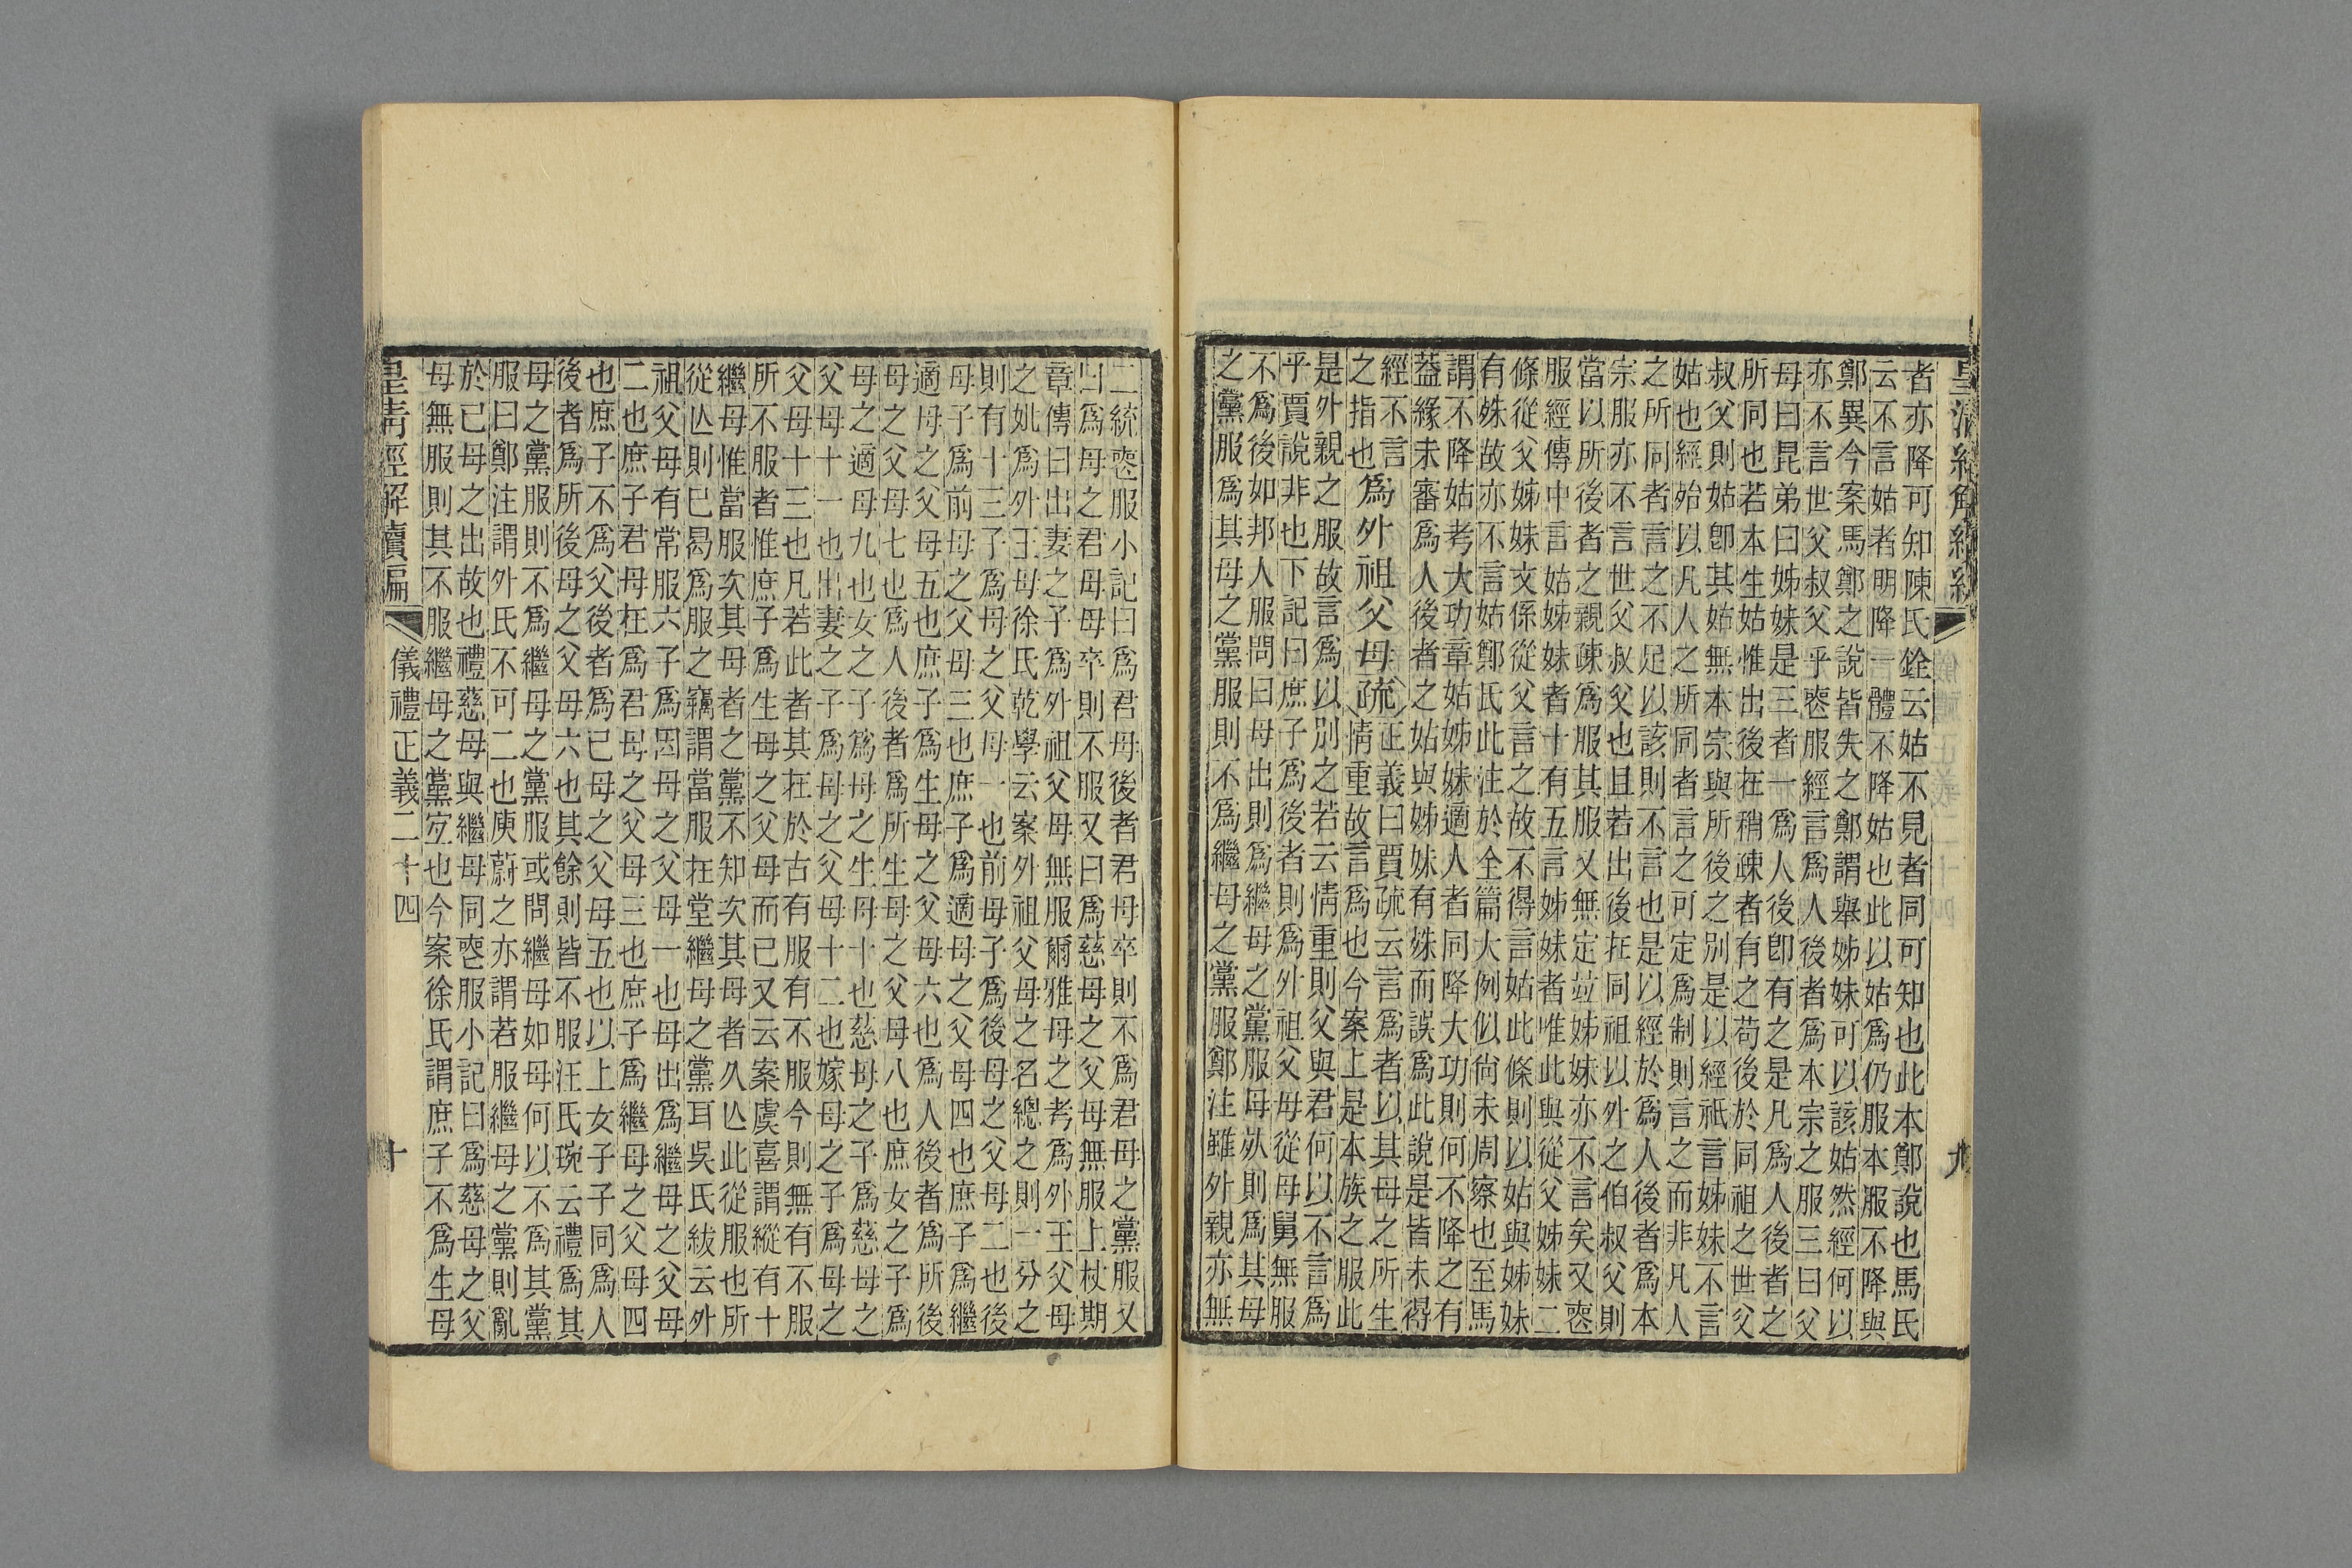 皇清經解續編
者亦降可知陳氏銓云姑不見者同可知也此本鄭說也馬氏
云不言姑者明降一體不降姑也此以姑爲仍服本服不降與
鄭異今案馬鄭之說皆失之鄭謂舉姊妹可以該姑然經何以
亦不言世父叔父乎喪服經言爲人後者爲本宗之服三曰父
母曰昆弟曰姊妹是三者一爲人後卽有之是凡爲人後者之
所同也若本生姑惟出後在稍疎者有之苟後於同祖之世父
叔父則姑卽其姑無本宗與所後之別是以經祇言姊妹不言
姑也經殆以凡人之所同者言之可定爲制則言之而非凡人
之所同者言之不足以該則不言也是以經於爲人後者爲本
宗服亦不言世父叔父也且若出後在同祖以外之伯叔父則
當以所後者之親疎爲服其服又無定竝姊妹亦不言矣又喪
服經傳中言姑姊妹者十有五言姊妹者唯此與從父姊妹二
條從父姊妹文係從父言之故不得言姑此條則以姑與姊妹
有殊故亦不言姑鄭氏此注於全篇大例似尙未周察也至馬
謂不降姑考大功章姑姊妹適人者同降大功則何不降之有
蓋緣未審爲人後者之姑與姊妹有殊而誤爲此說是皆未得
經不言
之指也
爲外祖父母疏
正義曰賈疏云言爲者以其母之所生
情重故言爲也今案上是本族之服此
是外親之服故言爲以別之若云情重則父與君何以不言爲
乎賈說非也下記曰庶子爲後者則爲外祖父母從母舅無服
不爲後如邦人服問曰母出則爲繼母之黨服母死則爲其母
之黨服爲其母之黨服則不爲繼母之黨服鄭注雖外親亦無
九
二統喪服小記曰爲君母後者君母卒則不爲君母之黨服又
曰爲母之君母母卒則不服又曰爲慈母之父母無服上杖期
章傳曰出妻之子爲外祖父母無服爾雅母之考爲外王父母
之妣爲外王母徐氏乾學云案外祖父母之名總之則一分之
則有十三子爲母之父母一也前母子爲後母之父母二也後
母子爲前母之父母三也庶子爲適母之父母四也庶子爲繼
適母之父母五也庶子爲生母之父母六也爲人後者爲所後
母之父母七也爲人後者爲所生母之父母八也庶女之子爲
母之適母九也女之子爲母之生母十也慈母之子爲慈母之
父母十一也出妻之子爲母之父母十二也嫁母之子爲母之
父母十三也凡若此者其在於古有服有不服今則無有不服
所不服者惟庶子爲生母之父母而已又云案虞喜謂縱有十
繼母惟當服次其母者之黨不知次其母者久亾此從服也所
從亾則已曷爲服之竊謂當服在堂繼母之黨耳吳氏紱云外
祖父母有常服六子爲因母之父母一也母出爲繼母之父母
二也庶子君母在爲君母之父母三也庶子爲繼母之父母四
也庶子不爲父後者爲己母之父母五也以上女子子同爲人
後者爲所後母之父母六也其餘則皆不服汪氏琬云禮爲其
母之黨服則不爲繼母之黨服或問繼母如母何以不爲其黨
服曰鄭注謂外氏不可二也庾蔚之亦謂若服繼母之黨則亂
於己母之出故也禮慈母與繼母同喪服小記曰爲慈母之父
母無服則其不服繼母之黨宐也今案徐氏謂庶子不爲生母
皇清經解續編
儀禮正義二十四
十